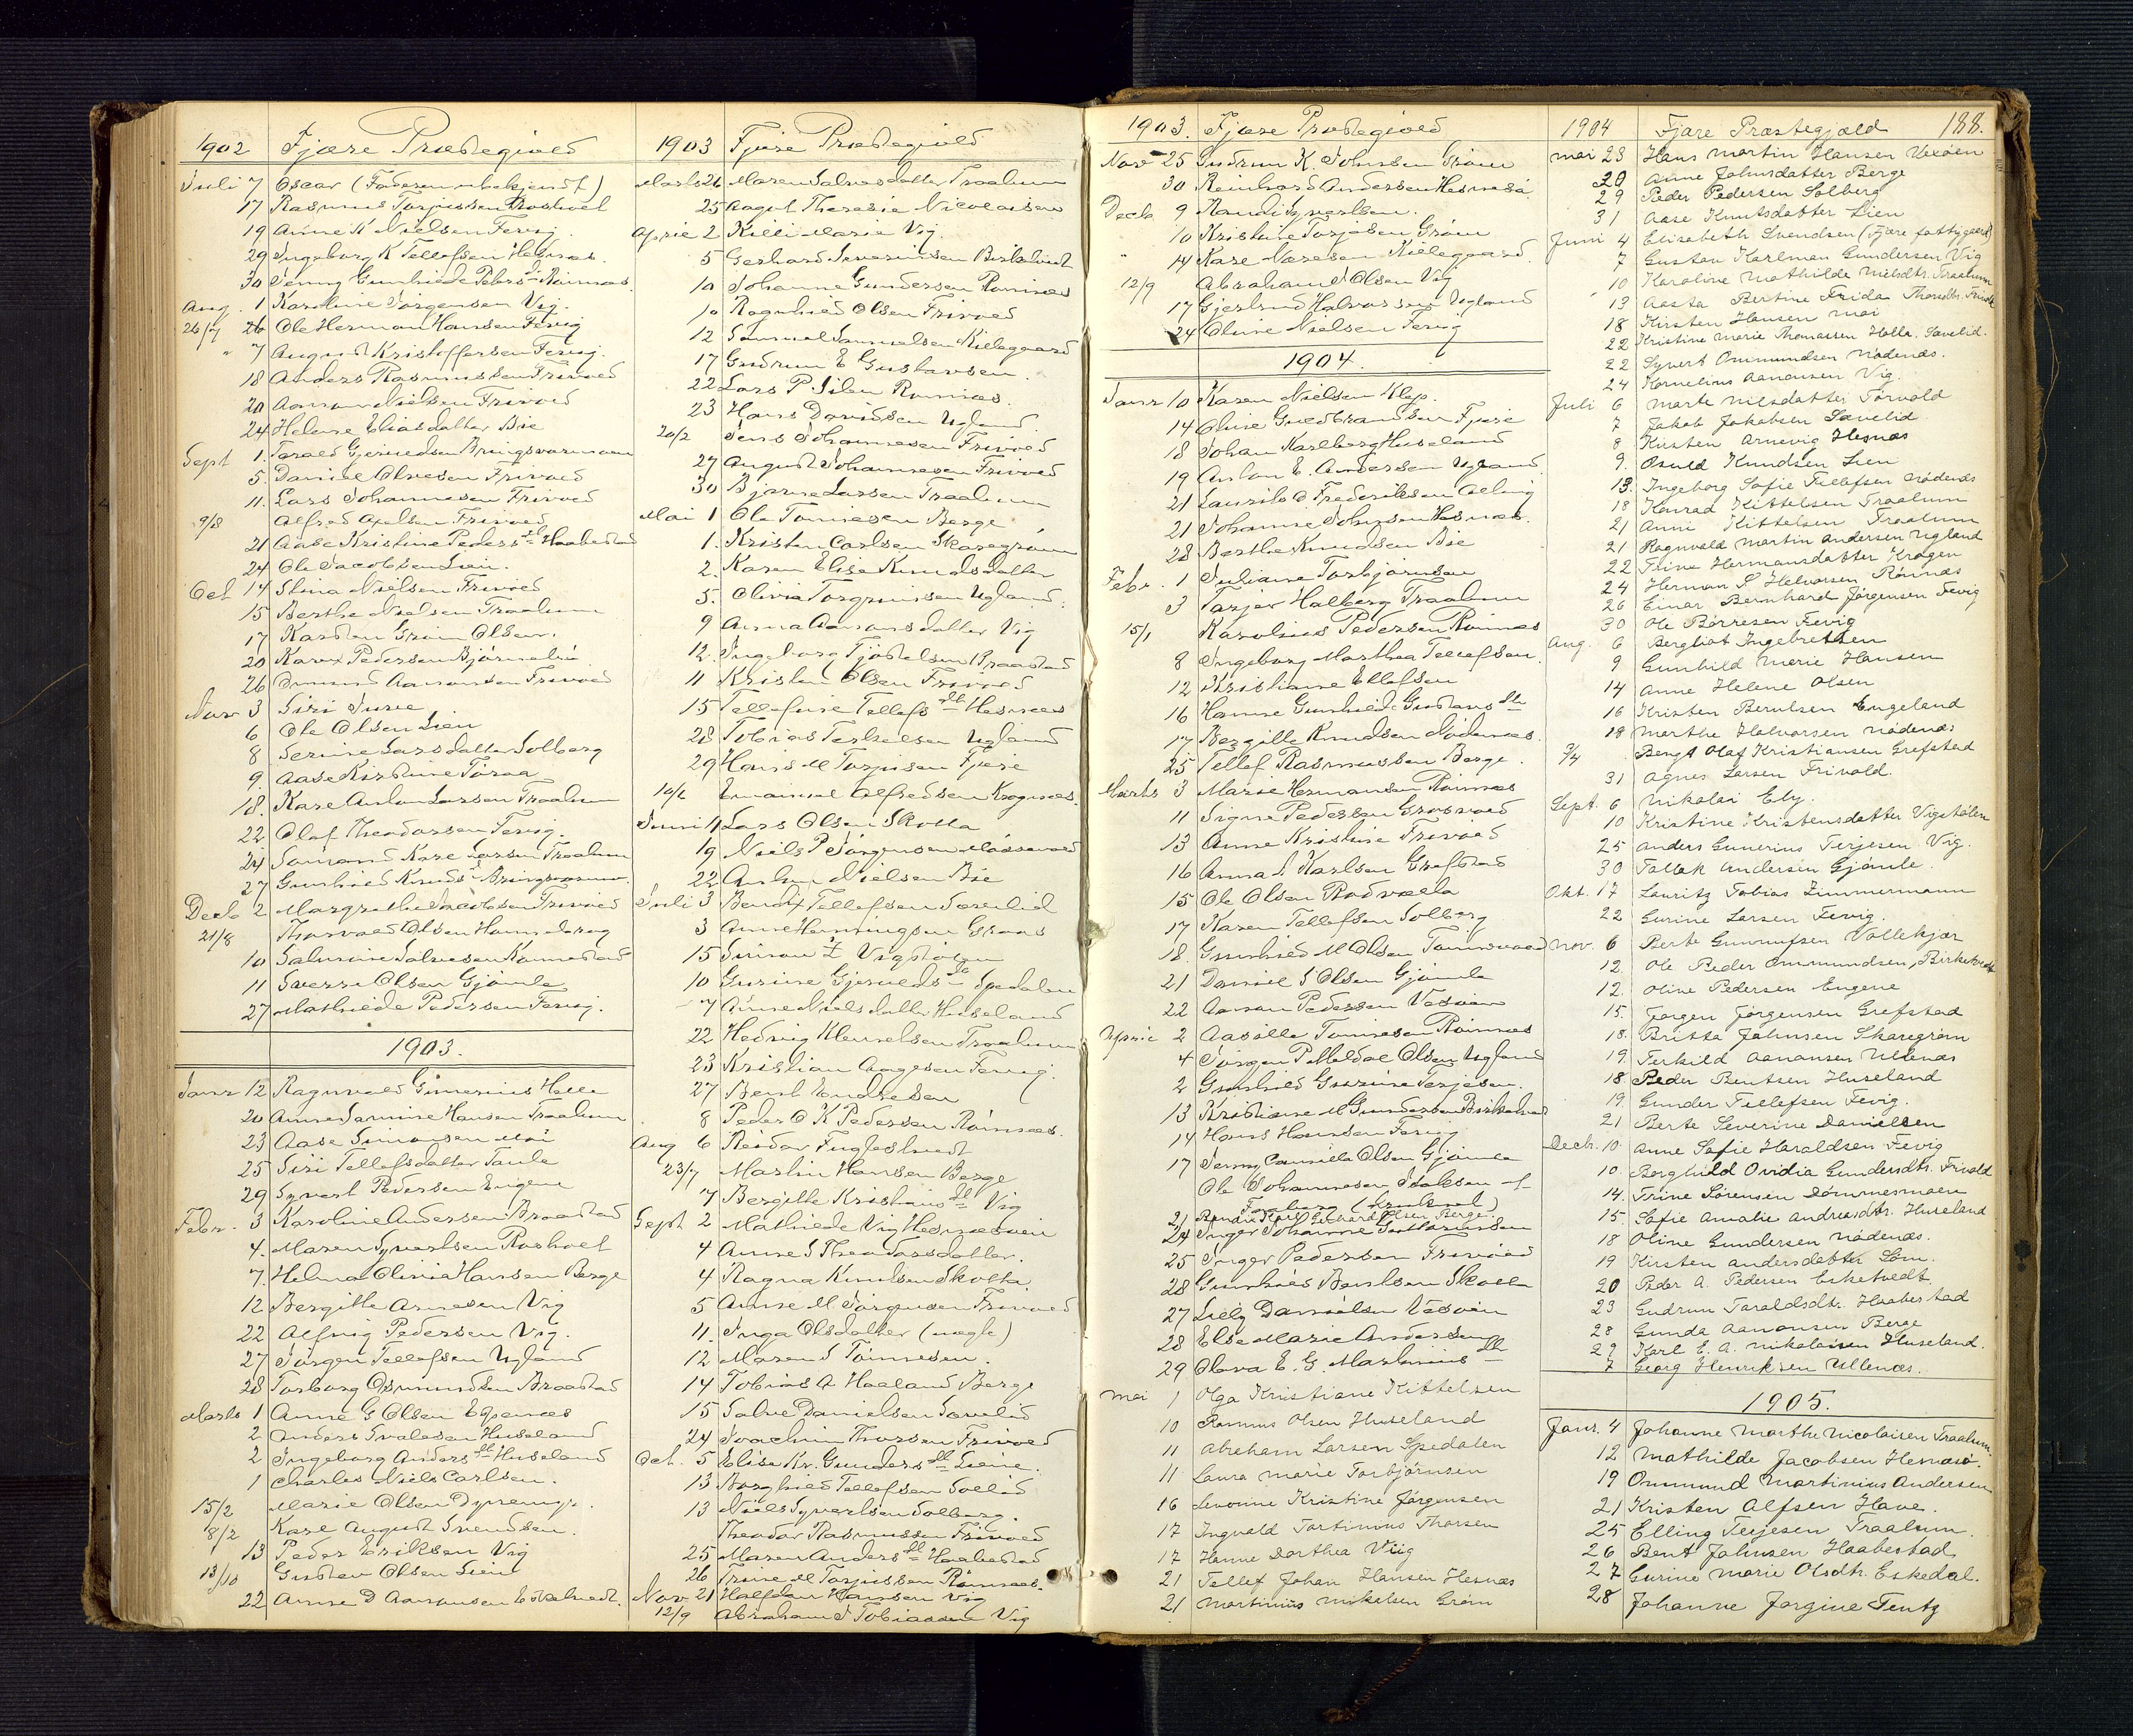 1902 Fjære Prestegjeld
Juli 7 Oscar (Faderen ubekjendt)
17 Rasmus Torjussen
19 Anne K Nielsen Fevig
29 Ingeborg K Tellefsen Hesnæs
30 Jenny Gunhilde Peders Rönnæs
Aug. 1 Karoline Jørgensen Vig.
26/7 26 Ole Herman Hansen Fevig
" 7 August Kristoffersen Fevig.
18 Anders Rasmussen Frivold
20 Aanon Nielsen Frivold
24 Helene Eliasdatter Bie
Sept 1. Tarald Gjeruldsen Bringsværmoen
5. Daniel Olsen Frivold
11. Lars Johannesen Frivold
9/8 Alfred Axelsen Frivold
21 Aase Kristine Peders dtr Haabestad
24 Ole Jacobsen Lien.
Oct 14 Stina Nielsen Frivold
15 Berthe Nielsen Traalum
17 Karsten Grøm Olsen.
20 Karen Pedersen
26 Aanonsen Frivold
Nov 3 Siri
6 Ole Olsen Lien
8 Serine Larsdatter Solberg
9. Aase Kirstine
18. Kare Anton Larsen Traalum
22 Olaf Theodorsen Fevig.
24 Kare Larsen Traalum
27 Gunhild Knuds
Decb 2 Margrethe Jacobsen Frivold
21/8 Thorvald Olsen
10 Salmine Salvesen
11 Sverre Olsen Gjömle
27 Mathilde Pedersen Fevig.
1903.
Janr 12 Ragnvald Gunerius Holle
20 Anne Samine Hansen Traalum
23 Aase Simonsen Moi
25 Siri Tellefsdatter Taule
29 Syvert Pedersen Engene
Febr. 3 Karoline Andersen Braastad
4. Maren Syvertsen
7. Helma Olivia Hansen Berge
12 Bergitte Arnesen Vig
22 Alfnig Pedersen Vig.
27 Jörgen Tellefsen Ugland
28 Torborg Osmundsen Braastad
Marts 1 Anne G Olsen Egenæs
2 Anders Svalesen Huseland
2 Ingeborg Anders dtr Huseland
1 Charles Niels Carlsen.
15/2 Marie Olsen
8/2 Karl August Svendsen.
13 Peder Eriksen Vig
13/10 Gustav Olsen Lien
22 Anne D Aanonsen Eskelvedt.
1903 Fjære Prestegjeld
Marts 26 Maren Salvesdatter Traalum
25 Aagot Theresie Nicolaisen
April 2 Killi Marie Vig
5 Gerhard Severinsen Birkelvedt
10 Johanne Gundersen Rönnæs
10 Ragnhild Olsen Frivold
12 Samuel Samuelsen Killegaard
17 Gudrun E Gustavsen.
22 Lars P. Silen Rønnæs.
23 Hans Davidsen Ugland.
20/2 Jens Johannesen Frivold
27 August Johannesen Frivold
30 Bjarne Larsen Traalum
Mai 1 Ole Tønnesen Berge
1. Kristen Carlsen Skaregrøm
2. Karen Elise Knudsdatter
5. Olivia Torgrimsen Ugland.
9 Anna Aanonsdatter Vig
12. Ingeborg Tjöstelsen Braastad
11 Kristen Olsen Frivold
15 Tellefine Tellefs dtr Hesnæs
28 Tobias Terkelsen Ugland
29 Hans M Torjusen Fjære
10/6 Emanuel Alfredsen Krognæs.
Juni 4 Lars Olsen Skolla
19 Niels P Jörgensen
22 Anton Nielsen Bie
Juli 3 Bendix Tellefsen Sævelid
3 Anne Henningsen Groos
15 Vigstölen
10 Gurine Gjerulds dtr Spedalen
7 Anne Nielsdatter Huseland
22 Hedvig Klemetsen Traalum
23 Kristian Aagesen Fevig.
27 Bent Endresen
8 Peder O K Pedersen Rönnæs.
Aug 6 Reidar Fuglestvedt
23/7 Martin Hansen Berge
7 Bergitte Kristians dtr Vig
Sept 2 Mathilde Vig Hesnæsøien
4 Anne S Theodorsdatter.
4 Ragna Knudsen Skolla
5 Anne M Jörgensen Frivold
11. Inga Olsdatter (uægte)
12 Maren S Tönnesen.
14 Tobias A Haaland Berge
15 Salve Danielsen Sævelid
24 Joachim Thorsen Frivold
Oct. 5 Elise Kr. Gunders dtr Liene.
13 Borghild Tellefsen
13 Niels Syvertsen Solberg.
Theodor Rasmussen Frivold
25 Maren Anders dtr Haabestad
26 Trine M Torjussen Rönnæs.
Nov 21 Halfdan Hansen Vig
12/9 Abraham S Tobiassen Vig
1903. Fjære Prestegjeld
Nov 25 Gudrun K. Johnsen Grøm
30 Reinhard Andersen Hesneså
Decb. 9 Randi Syvertsen.
10 Kristine Torjesen Grøm
" 14 Kare Næresen Killegaard.
12/9 Abraham S Olsen Vig
17 Gjertrud Halvorsen Ugland
24 Oline Nielsen Fevig
1904.
Janr 10 Karen Nielsen Klep.
14 Oline Guldbrandsen Fjære
18 Johan Karlberg Huseland
19 Anton E. Andersen Ugland
21 Laurits D Frederiksen
21 Johanne Johnsen Hesnæs.
28 Berthe Knudsen Bie
Febr. 1 Juliane Torbjørnsen
3 Torjer Halberg Traalum
15/1 Karolius Pedersen Rönnæs
8 Ingeborg Marthea Tellefsen.
12 Kristiane Ellefsen
16 Hanne Gunhild Gustavs dtr
17 Bergitte Knudsen Nødenæs.
25 Tellef Rasmussen Berge.
Marts 3 Marie Hermansen Rönnæs
11 Signe Pedersen
13 Anne Kristine Frivold
16 Anna S Karlsen Grefstad
15 Ole Olsen Rodvælla
17 Karen Tellefsen Solberg
18. Gunhild M Olsen
21 Daniel S Olsen Gjömle
22 Aanon Pedersen Vessøen
April 2 Aasille Tønnesen Rönnæs
4 Jörgen P Meldal Olsen Ugland
2 Gunhild Gurine Terjesen.
13 Kristiane M Gundersen Birkelvedt
14 Hans Hansen Fevig
17 Jenny Camilla Olsen Gjömle
Ole Johannesen Isaksen f.
21 Olsen Berge.
24 Inger Johanne Guttormsen
25 Inger Pedersen Frivold
28 Gunhild Bentsen Skolla
27 Lilly Danielsen Vessøen
28 Else Marie Andersen
29 Olava E. G. Martinius dtr
Mai 1 Olga Kristiane Kittelsen
10 Rasmus Olsen Huseland
11 Abraham Larsen Spedalen
11 Laura Marie Torbjörnsen
16 Levonne Kristine Jörgensen
17 Ingvald Tortinius Thorsen
17 Hanne Dorthea Viig
21 Tellef Johan Hansen Hesnæs
21 Martinius Mikelsen Grøm
1904 Fjære Præstegjæld 188.
Mai 23 Hans Martin Hansen Vessøen
20 Anne Johnsdatter Berge
29 Peder Pedersen Solberg
31 Aase Knutsdatter Lien
Juni 4 Elisabeth Svendsen (Fjære fattiggaard)
7 Gustav Karlman Gundersen Vig
10 Karoline Mathilde Nielsdtr. Traalum
13 Aasta Bertine Frida Thorsdtr. Frivold
18 Kirsten Hansen Moi
22 Kristine Marie Thomassen Holla. Sævelid.
22 Syvert Ommundsen Nødenæs.
24 Kornelius Aanonsen Vig.
Juli 6 Marte Nilsdatter Torvold
7 Jakob Jakobsen Sævelid
8 Kirsten Arnevig Hesnæs
9. Osuld Knudsen Lien
13. Ingeborg Sofie Tellefsen Nødenæs
18 Konrad Kittelsen Traalum
21 Anni Kittelsen Traalum
21 Ragnvald Martin Andersen Ugland
22 Trine Hermansdatter Kragen
24 Herman S Helvorsen Rönnæs
26 Einar Bernhard Jörgensen Fevig
30 Ole Börresen Fevig
Aug. 6 Bergliot Ingebretsen
9 Gunhild Marie Hansen
14 Anne Helene Olsen
16 Kristen Berulsen Engeland
19 Marthe Halvorsen Nødenæs
3/4 Bengt Olaf Kristiansen Grefstad
31 Agnes Larsen Frivold.
Sept. 6 Nikolai Ely.
10 Kristine Kristensdatter Vigstølen
25 Anders Gunerius Terjesen Vig.
30 Tallak Andersen Gjömle.
Okt. 17 Lauritz Tobias Zimmermann
22 Gurine Larsen Fevig.
Nov. 6 Berte Gunnufsen Vollekjær
12. Ole Peder Ommundsen, Birkekvedt
12. Oline Pedersen Engene
15. Jörgen Jörgensen Grefstad
18. Britta Johnsen Skaregrøm
19. Terkild Aanonsen Ullenæs
18. Peder Bentsen Huseland
19. Gunder Tellefsen Fevig.
21 Berte Severine Danielsen
Decbr. 10. Anne Sofie Haraldsen Fevig
10. Borghild Ovidia Gundersdtr. Frivold
14. Trine Sörensen Dömmesmoen
15. Sofie Amalie Andreasdtr. Huseland
18 Oline Gundersen Nødenæs.
19 Kirsten Andersdatter Løm.
20 Peder A. Pedersen Eskelvedt.
23 Gudrun Taraldsdtr. Haabestad
28 Gunda Aanonsen Berge
29 Karl E. A. Nikolaisen Huseland.
7 Georg Henriksen Ullenæs.
1905.
Janr. 4 Johanne Marthe Nicolaisen Traalum.
12 Mathilde Jacobsen Hesnæsø.
19 Ommund Martinius Andersen
21 Kristen Alfsen Have.
25 Elling Terjesen Traalum.
26 Bent Johnsen Haabestad
27 Gurine Marie Olsdtr. Eskedal.
28 Johanne Jørgine Tentz